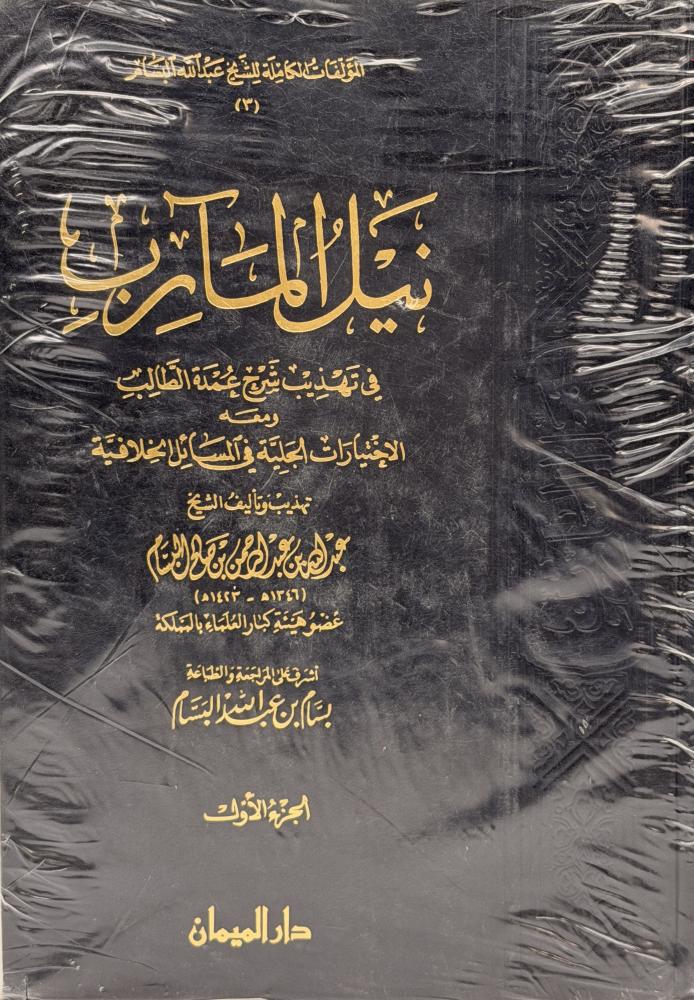 المؤلفات الكاملة للشيخ عبدالله البسام
(٣)
نيل المآرب
في تهذيب شرح عمدة الطالب
ومعه
الاختيارات الجلية في المسائل الخلافية
تهذيب وتأليف الشيخ
عبدالله بن عبدالرحمن بن صالح البسام
(١٣٤٦ه - ١٤٢٣ه)
عضو هيئة كبار العلماء بالمملكة
أشرف على المراجعة والطباعة
بسام بن عبدالله البسام
الجزء الأول
دار الميمان